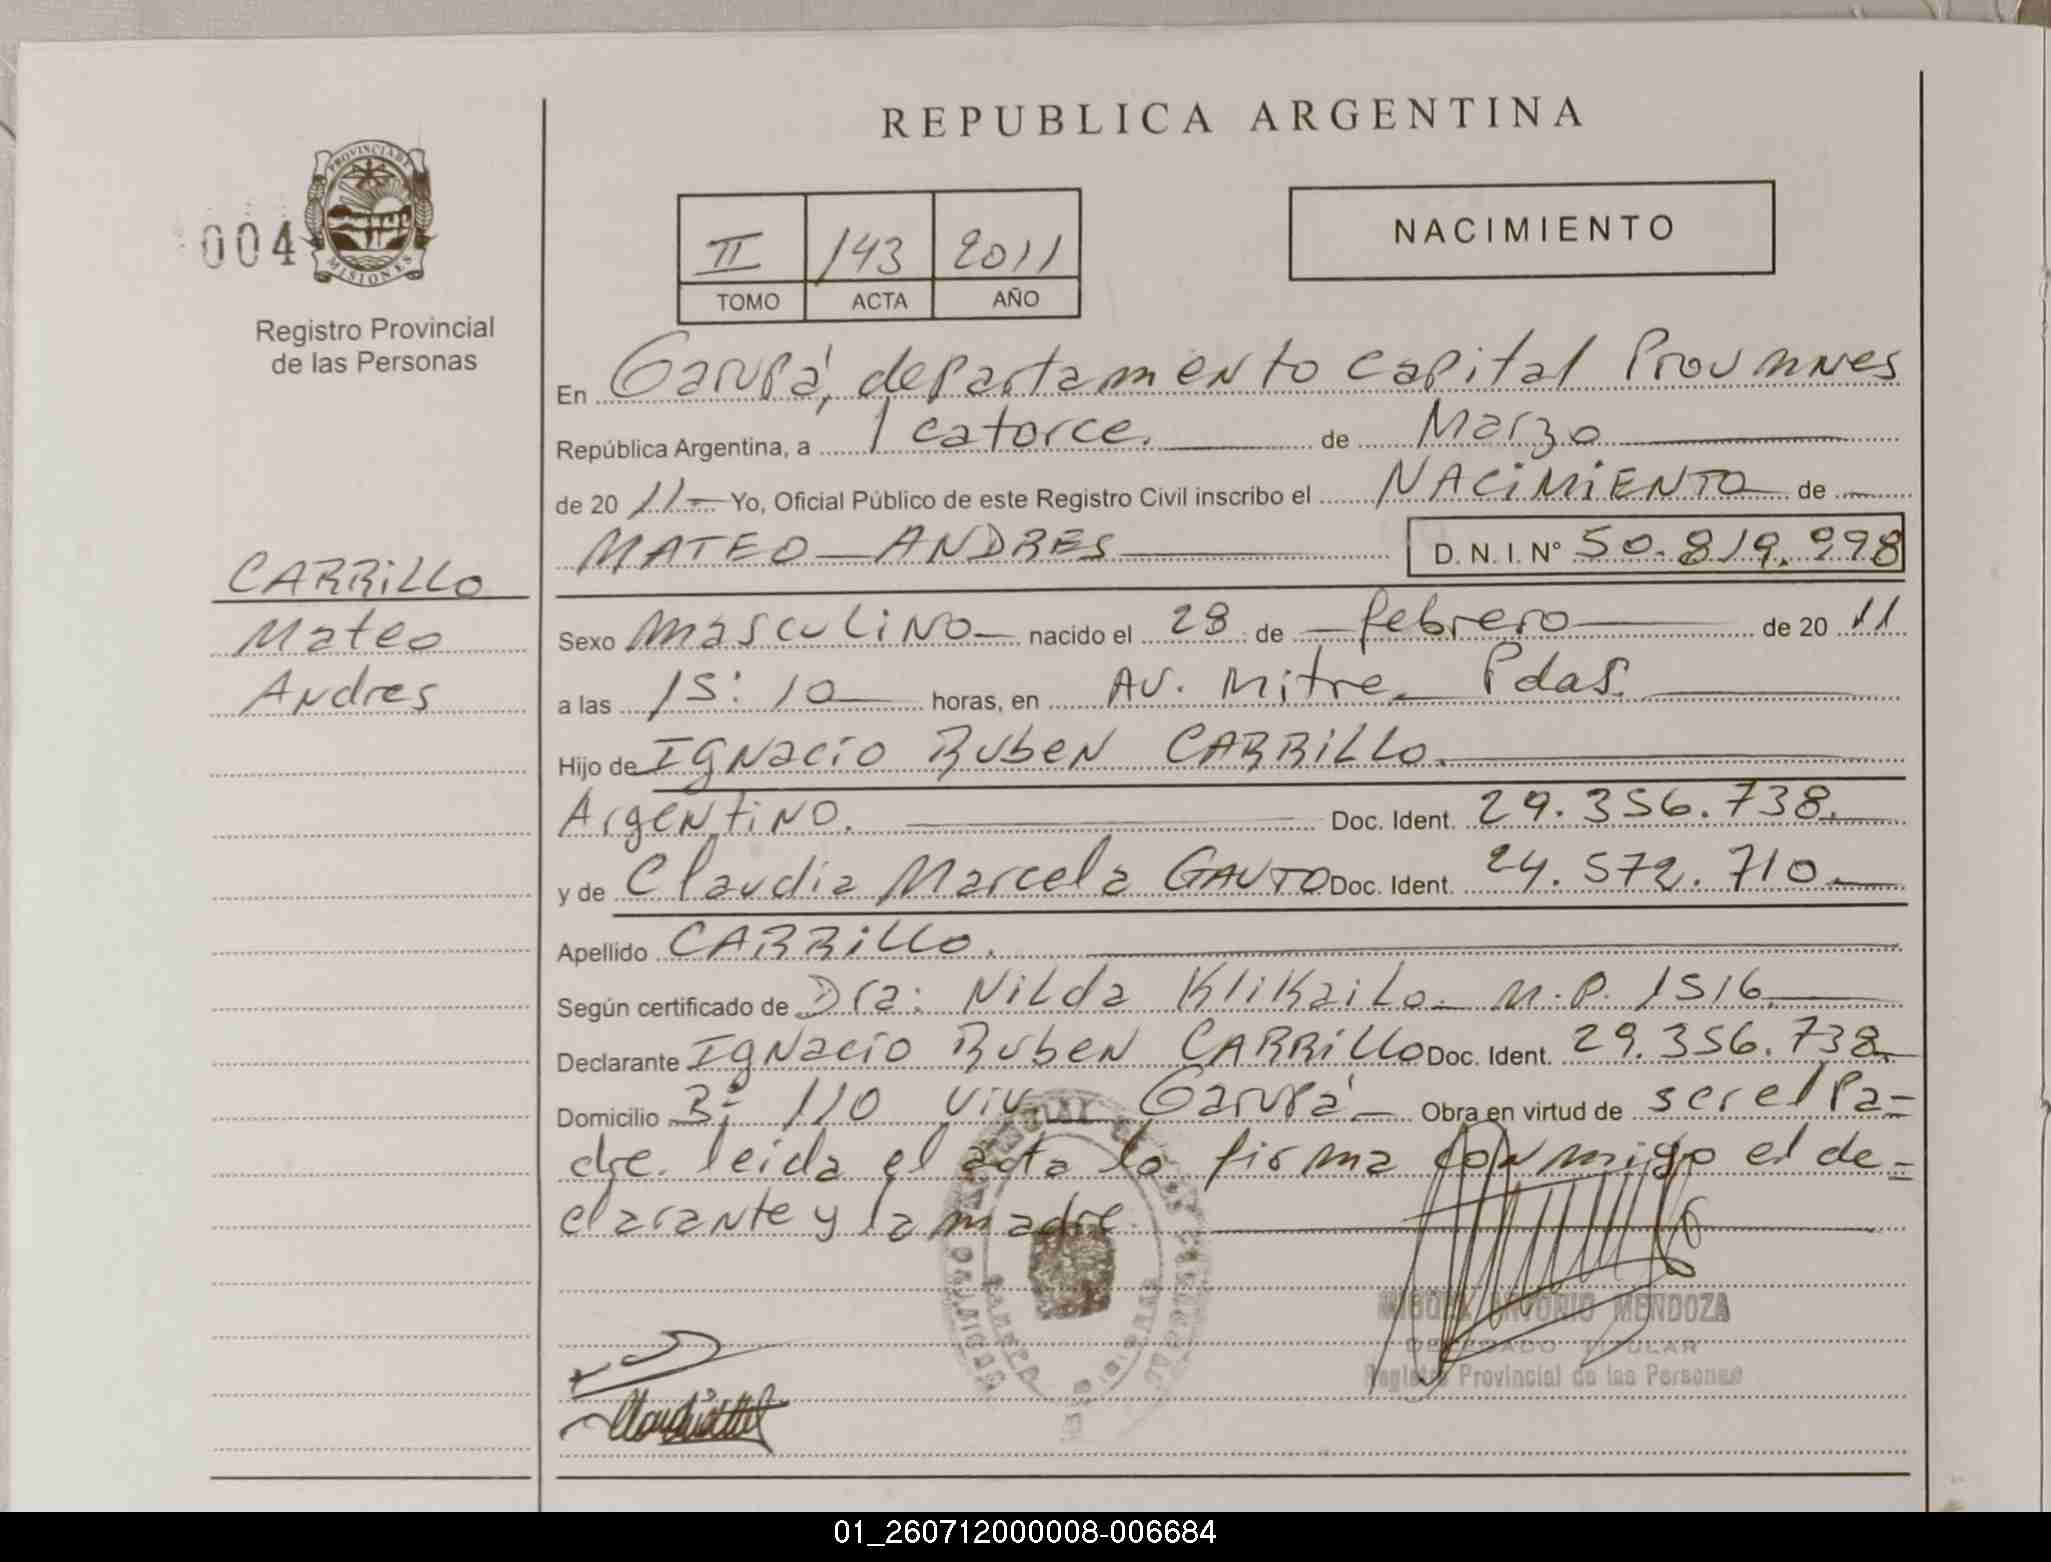 REPUBLICA ARGENTINA
PROVINCIA DE
MISIONES
004
Registro Provincial
de las Personas
II 143 2011
TOMO ACTA AÑO
NACIMIENTO
En Garupá, departamento Capital Prov Mnes
República Argentina, a 1 catorce. de Marzo
de 20 11 Yo, Oficial Público de este Registro Civil inscribo el NACIMIENTO de
MATEO ANDRES D. N. I. N° 50.819.998
CARRILLO
Mateo
Andres
Sexo masculino nacido el 28 de febrero de 20 11
a las 15:10 horas, en Av. Mitre Pdas.
Hijo de Ignacio Ruben CARRILLO.
Argentino. Doc. Ident. 29.356.738.
y de Claudia Marcela GAUTO Doc. Ident. 24.572.710
Apellido CARRILLO.
Según certificado de Dra: Nilda Klikailo M.P. 1516
Declarante Ignacio Ruben CARRILLO Doc. Ident. 29.356.738.
Domicilio B: 110 viv. Garupá Obra en virtud de ser el Pa=
dre. leida el acta la firma conmigo el de=
clarante y la madre.
MIGUEL ANTONIO MENDOZA
DELEGADO TITULAR
Registro Provincial de las Personas
01_260712000008-006684